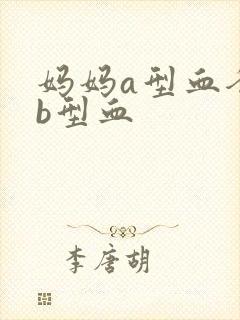 妈妈a型血
b型血
李唐胡